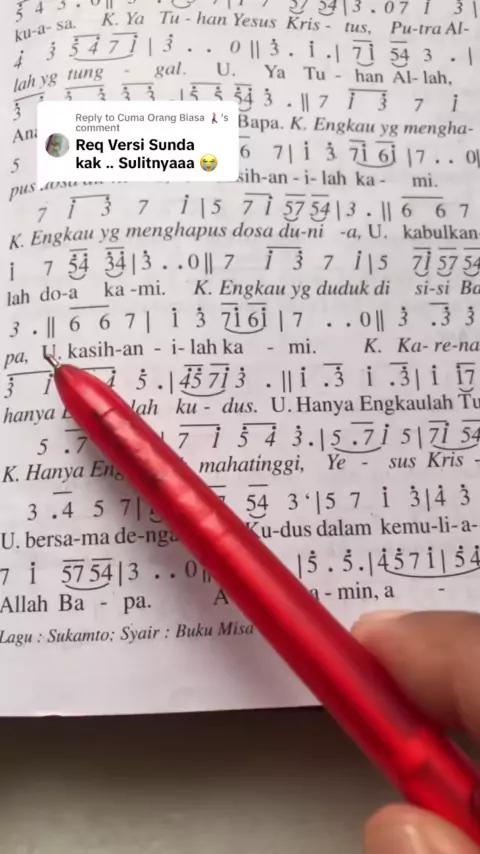 5 4 3 . 0 || 5 7 5 4 | 3 . 0 7 1 3 |
ku-a- sa. K. Ya Tu - han Yesus Kris - tus, Pu-tra Al-
4 3 5 4 7 1 | 3 . . 0 || 3 . 1 . | 7 1 5 4 3 . |
lah yg tung - gal. U. Ya Tu - han Al - lah,
Reply to Cuma Orang Biasa 's
comment
Req Versi Sunda
kak .. Sulitnyaaa 😭
Bapa. K. Engkau yg mengha-
6 7 | 1 3 7 1 6 1 | 7 . . 0 ||
pus sih-an - i - lah ka - mi.
7 1 3 7 1 | 5 7 1 5 7 5 4 | 3 . || 6 6 7
K. Engkau yg menghapus dosa du-ni -a, U. kabulkan-
1 7 5 4 3 4 | 3 . . 0 || 7 1 3 7 1 | 5 7 1 5 7 5 4
lah do-a ka -mi. K. Engkau yg duduk di si-si Ba
3 . || 6 6 7 | 1 3 7 1 6 1 | 7 . . 0 || 3 . 3 3
pa, U. kasih-an - i - lah ka - mi. K. Ka - re-na
3 1 4 5 . | 4 5 7 1 3 . || 1 . 3 1 . 3 | 1 1 7
hanya lah ku - dus. U. Hanya Engkaulah Tu
5 . 7 7 1 5 4 3 . | 5 . 7 1 5 | 7 1 5 4
K. Hanya Eng mahatinggi, Ye - sus Kris -
3 . 4 5 7 | 5 4 3 ' | 5 7 1 3 | 4 3
U. bersa-ma de-nga Ku-dus dalam kemu-li-a-
7 1 5 7 5 4 | 3 . . 0 || | 5 . 5 . | 4 5 7 1 | 5 4
Allah Ba - pa. A - min, a -
Lagu : Sukamto; Syair : Buku Misa